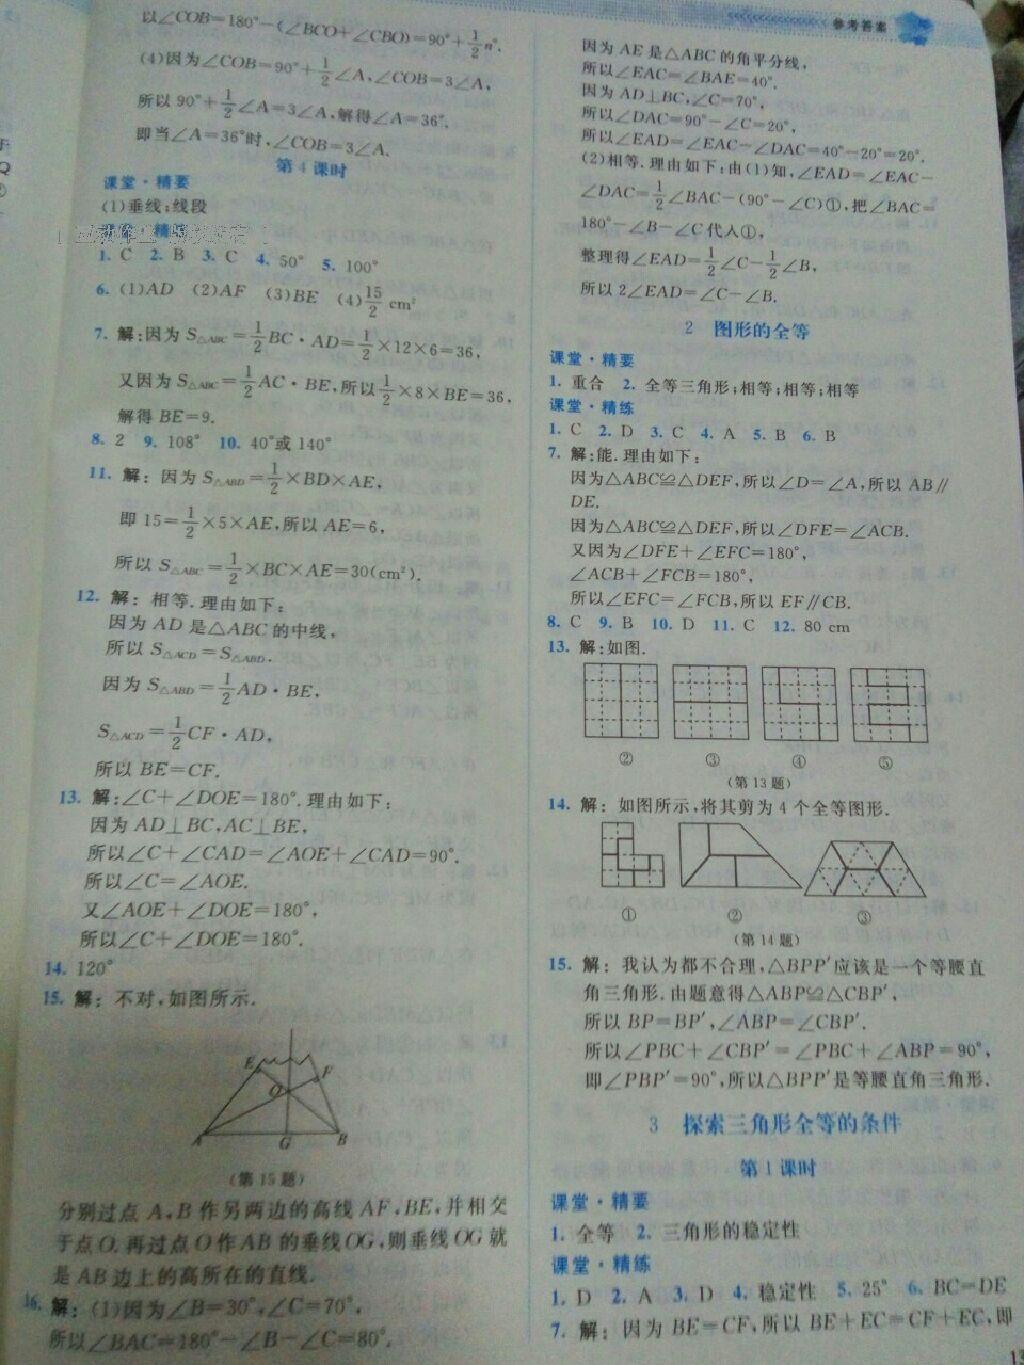 参考答案
以∠COB=180°-(∠BCO+∠CBO)=90°+1/2 n°.
(4)因为∠COB=90°+1/2∠A,∠COB=3∠A,
所以90°+1/2∠A=3∠A,解得∠A=36°.
即当∠A=36°时,∠COB=3∠A.
第4课时
课堂·精要
(1)垂线;线段
精
1. C 2. B 3. C 4. 50° 5. 100°
6. (1)AD (2)AF (3)BE (4)15/2 cm²
7. 解:因为S△ABC=1/2 BC·AD=1/2×12×6=36,
又因为S△ABC=1/2 AC·BE,所以1/2×8×BE=36,
解得BE=9.
8. 2 9. 108° 10. 40°或140°
11. 解:因为S△ABD=1/2×BD×AE,
即15=1/2×5×AE,所以AE=6,
所以S△ABC=1/2×BC×AE=30(cm²).
12. 解:相等.理由如下:
因为AD是△ABC的中线,
所以S△ACD=S△ABD.
因为S△ABD=1/2 AD·BE,
S△ACD=1/2 CF·AD,
所以BE=CF.
13. 解:∠C+∠DOE=180°.理由如下:
因为AD⊥BC,AC⊥BE,
所以∠C+∠CAD=∠AOE+∠CAD=90°.
所以∠C=∠AOE.
又∠AOE+∠DOE=180°,
所以∠C+∠DOE=180°.
14. 120°
15. 解:不对,如图所示.
E F
O
A G B
(第15题)
分别过点A,B作另两边的高线AF,BE,并相交
于点O.再过点O作AB的垂线OG,则垂线OG就
是AB边上的高所在的直线.
16. 解:(1)因为∠B=30°,∠C=70°,
所以∠BAC=180°-∠B-∠C=80°,
因为AE是△ABC的角平分线,
所以∠EAC=∠BAE=40°,
因为AD⊥BC,∠C=70°,
所以∠DAC=90°-∠C=20°,
所以∠EAD=∠EAC-∠DAC=40°-20°=20°.
(2)相等.理由如下:由(1)知,∠EAD=∠EAC-
∠DAC=1/2∠BAC-(90°-∠C)①,把∠BAC=
180°-∠B-∠C代入①,
整理得∠EAD=1/2∠C-1/2∠B,
所以2∠EAD=∠C-∠B.
2 图形的全等
课堂·精要
1. 重合 2. 全等三角形;相等;相等;相等
课堂·精练
1. C 2. D 3. C 4. A 5. B 6. B
7. 解:能.理由如下:
因为△ABC≌△DEF,所以∠D=∠A,所以AB∥
DE.
因为△ABC≌△DEF,所以∠DFE=∠ACB.
又因为∠DFE+∠EFC=180°,
∠ACB+∠FCB=180°,
所以∠EFC=∠FCB,所以EF∥CB.
8. C 9. B 10. D 11. C 12. 80 cm
13. 解:如图.
② ③ ④ ⑤
(第13题)
14. 解:如图所示,将其剪为4个全等图形.
① ② ③
(第14题)
15. 解:我认为都不合理,△BPP′应该是一个等腰直
角三角形.由题意得△ABP≌△CBP′,
所以BP=BP′,∠ABP=∠CBP′.
所以∠PBC+∠CBP′=∠PBC+∠ABP=90°,
即∠PBP′=90°,所以△BPP′是等腰直角三角形.
3 探索三角形全等的条件
第1课时
课堂·精要
1. 全等 2. 三角形的稳定性
课堂·精练
1. D 2. A 3. D 4. 稳定性 5. 25° 6. BC=DE
7. 解:因为BE=CF,所以BE+EC=CF+EC,即